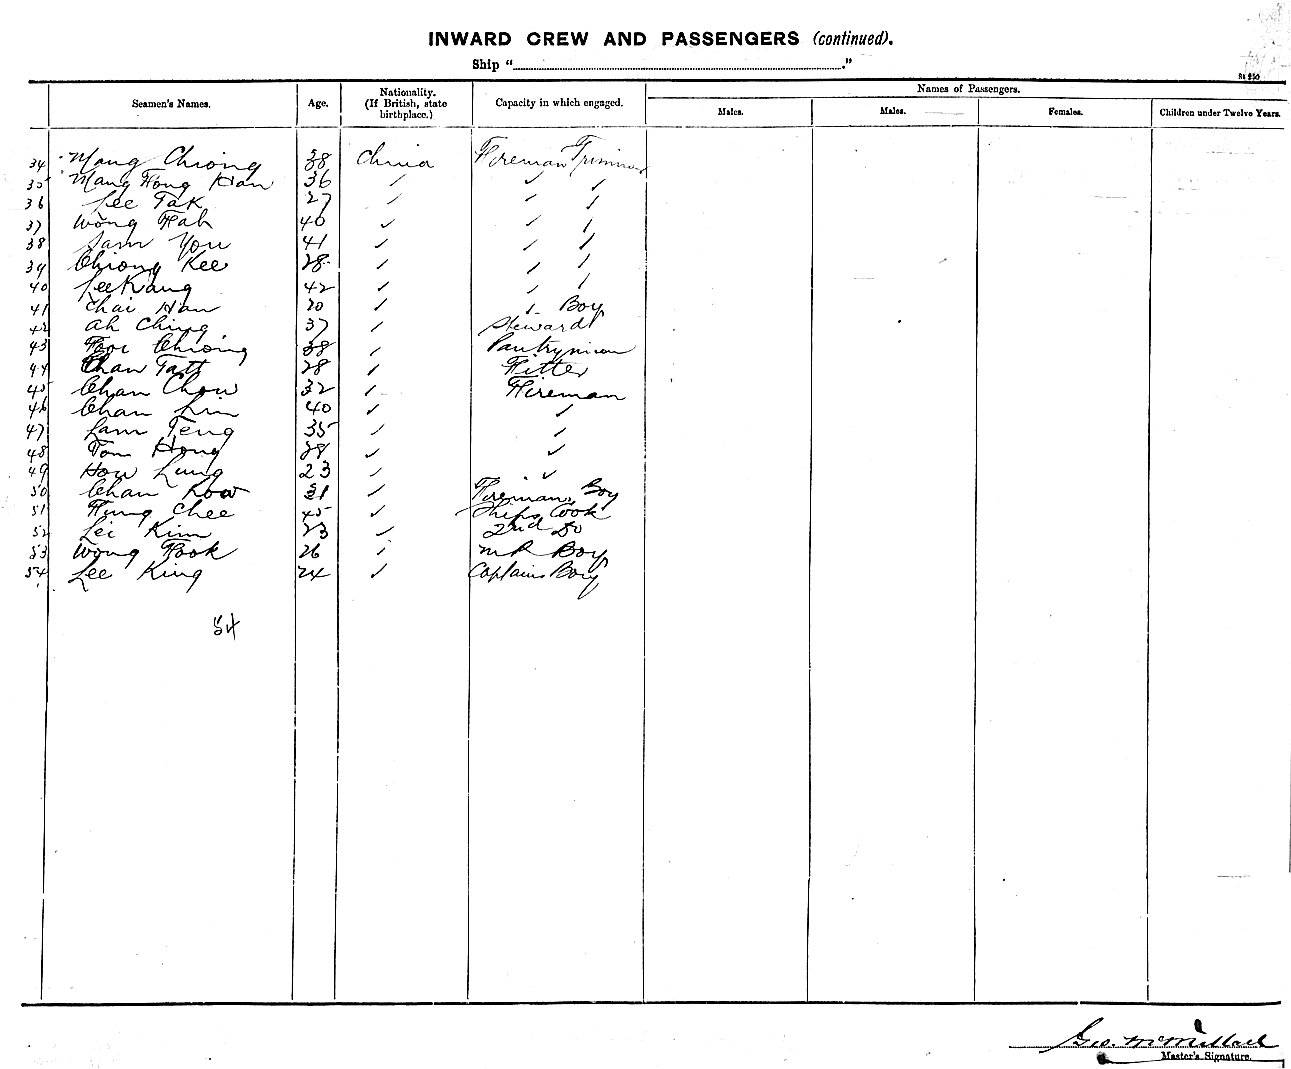 INWARD CREW AND PASSENGERS (continued).
Ship "........."
Seamen's Names. Age. Nationality. (If British, state birthplace.) Capacity in which engaged. Names of Passengers.
Males. Males. Females. Children under Twelve Years.
34 Mong Chiong 38 China Fireman Trimmer
35 Mang Hong Han 36 / / /
36 Lee Tak 27 / / /
37 Wong Hah 40 / / /
38 Sam You 41 / / /
39 Chiong Kee 28 / / /
40 Lee Kang 42 / / /
41 Chai Han 20 / / Boy
42 Ah Ching 37 / Steward
43 Chiong 38 / Pantryman
44 Chan Tatt 28 / Fitter
45 Chan Chow 32 / Fireman
46 Chan Lin 40 / /
47 Lam Teng 35 / /
48 Tom Hong 28 / /
49 How Lung 23 / /
50 Chan Kow 31 / Firemans Boy
51 Hung Chee 45 / Ships Cook
52 Lei Kim 23 / 2nd Do
53 Wong Fook 26 / M R Boy
54 Lee King 24 / Captains Boy
54
Geo. McMillard
Master's Signature.